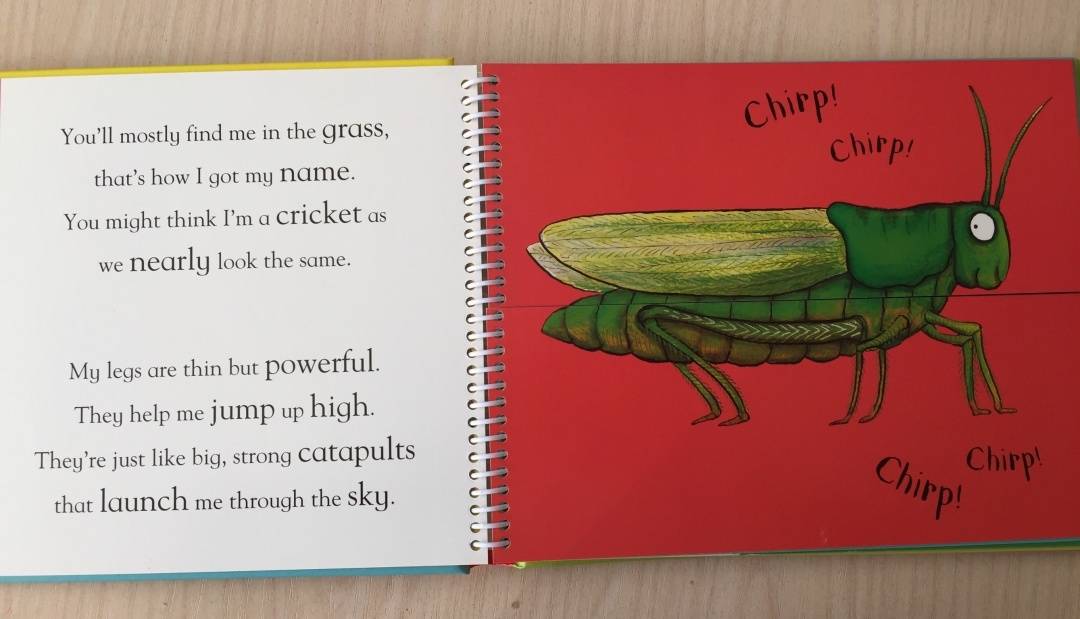 You'll mostly find me in the grass,
that's how I got my name.
You might think I'm a cricket as
we nearly look the same.
My legs are thin but powerful.
They help me jump up high.
They're just like big, strong catapults
that launch me through the sky.
Chirp!
Chirp!
Chirp!
Chirp!